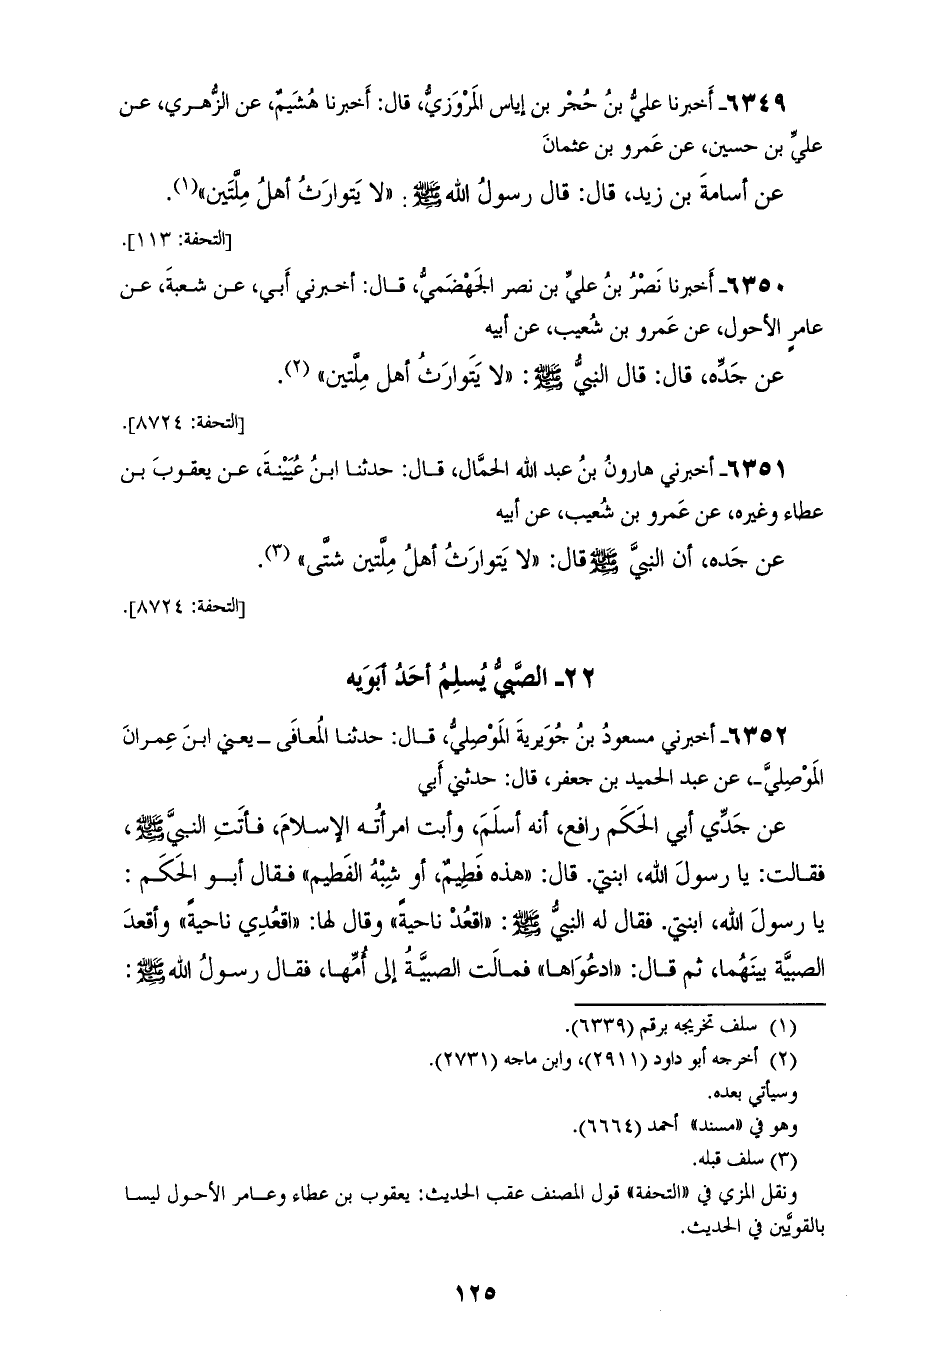 ٦٣٤٩ـ أَخبرنا عليُّ بنُ حُجْر بن إياس المَرْوَزيُّ، قال: أَخبرنا هُشَيمٌ، عن الزُّهـري، عـن
عليِّ بن حسين، عن عَمرو بن عثمانَ
عن أسامةَ بن زيد، قال: قال رسولُ الله ﷺ : «لا يَتوارَثُ أهلُ مِلَّتَين»(١).
[التحفة: ١١٣].
٦٣٥٠ـ أَخبرنا نَصْرُ بنُ عليِّ بن نصر الجَهْضَميُّ، قـال: أخـبرني أَبي، عـن شـعبةَ، عـن
عامرٍ الأحول، عن عَمرو بن شُعيب، عن أبيه
عن جَدِّه، قال: قال النبيُّ ﷺ : «لا يَتَوارَثُ أهل مِلَّتين» (٢).
[التحفة: ٨٧٢٤].
٦٣٥١ـ أخبرني هارونُ بنُ عبد الله الحمَّال، قـال: حدثنـا ابـنُ عُيَيْنـةَ، عـن يعقـوبَ بـن
عطاء وغيره، عن عَمرو بن شُعيب، عن أبيه
عن جَده، أن النبيَّ ﷺ قال: «لا يَتوارَثُ أهلُ مِلَّتين شتَّى» (٣).
[التحفة: ٨٧٢٤].
٢٢ـ الصَّبيُّ يُسلِمُ أحَدُ أبَوَيه
٦٣٥٢ـ أخبرني مسعودُ بنُ جُوَيريةَ المَوْصِليُّ، قـال: حدثنـا المُعافَى ـ يعـني ابـنَ عِمـرانَ
المَوْصِليَّ ـ، عن عبد الحميد بن جعفر، قال: حدثني أَبي
عن جَدِّي أبي الحَكَم رافع، أنه أسلَمَ، وأبت امرأتُـه الإسـلامَ، فـأتَتِ النبيَّ ﷺ ،
فقـالت: يا رسولَ الله، ابنتي. قال: «هذه فَطِيمٌ، أو شِبْهُ الفَطيم» فـقال أبـو الحَكَـم :
يا رسولَ الله، ابنتي. فقال له النبيُّ ﷺ : «اقعُدْ ناحيةً» وقال لها: «اقعُدِي ناحيةً» وأقعدَ
الصبيَّة بينَهُما، ثم قـال: «ادعُوَاهـا» فمـالَت الصبيَّـةُ إلى أُمِّهـا، فقـال رسـولُ الله ﷺ :
(١) سلف تخريجه برقم (٦٣٣٩).
(٢) أخرجه أبو داود (٢٩١١)، وابن ماجه (٢٧٣١).
وسيأتي بعده.
وهو في «مسند» أحمد (٦٦٦٤).
(٣) سلف قبله.
ونقل المزي في «التحفة» قول المصنف عقب الحديث: يعقوب بن عطاء وعـامر الأحـول ليسـا
بالقويَّين في الحديث.
١٢٥